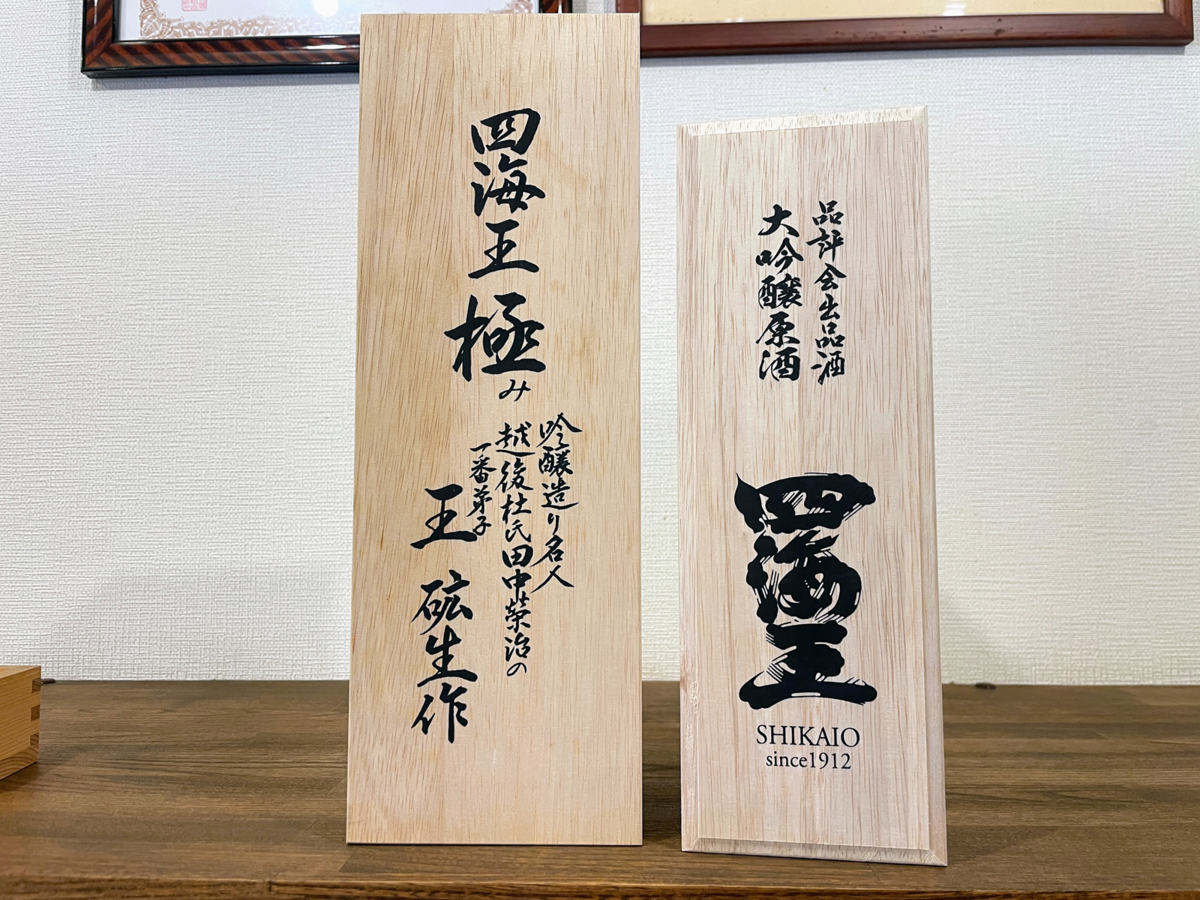 四海王
極み
吟醸造り名人
越後杜氏田中榮治の
一番弟子
王砿生作
品評会出品酒
大吟醸原酒
四海王
SHIKAIO
since1912